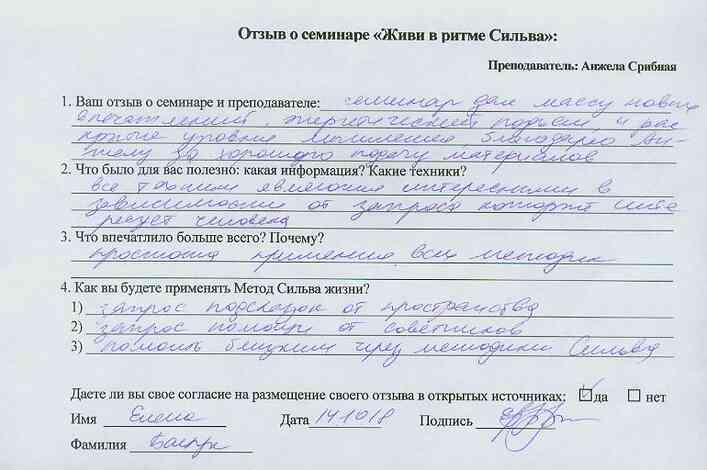 Отзыв о семинаре «Живи в ритме Сильва»:
Преподаватель: Анжела Срибная
1. Ваш отзыв о семинаре и преподавателе: семинар дал массу новых
впечатлений, энергетический подъем, и рас
крытие уровня мышления Благодарю Ан-
желу за хорошую подачу материалов
2. Что было для вас полезно: какая информация? Какие техники?
все техники являются интересными в
зависимости от запроса который инте
ресует человека
3. Что впечатлило больше всего? Почему?
простота применения всех методик
4. Как вы будете применять Метод Сильва жизни?
1) запрос подсказок от пространства
2) запрос помощи от советников
3) помощь близким чрез методики Сильва
Даете ли вы свое согласие на размещение своего отзыва в открытых источниках: да нет
Имя Елена Дата 14.10.18 Подпись
Фамилия